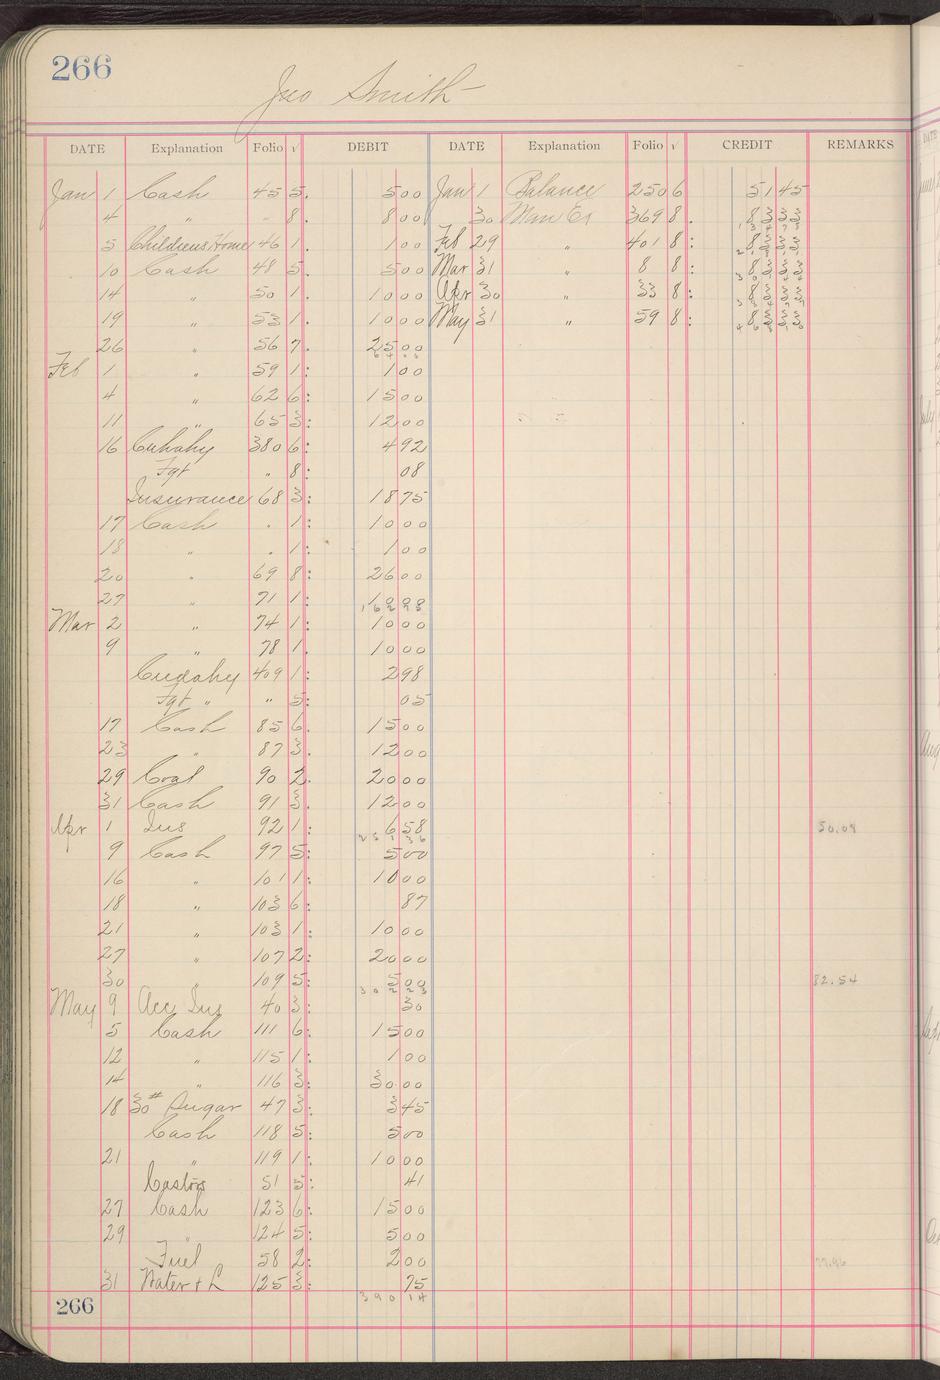 266
Jno Smith
DATE Explanation Folio √ DEBIT DATE Explanation Folio √ CREDIT REMARKS
Jan 1 Cash 45 5. 5 00 Jan 1 Balance 250 6 51 45
4 " " 8. 8 00 30 Mm Es 369 8.
5 Childrens Home 46 1. 1 00 Feb 29 " 401 8:
10 Cash 48 5. 5 00 Mar 31 " 8 8:
14 " 50 1. 10 00 Apr 30 " 33 8:
19 " 53 1. 10 00 May 31 " 59 8:
26 " 56 7. 25 00
Feb 1 " 59 1: 1 00
4 " 62 6: 15 00
11 " 65 3: 12 00
16 Cudahy 380 6: 4 92
Fgt " 8: 08
Insurance 68 3: 18 75
17 Cash " 1: 10 00
18 " " 1: 1 00
20 " 69 8: 26 00
27 " 71 1: 10 00
Mar 2 " 74 1: 10 00
9 " 78 1. 10 00
Cudahy 409 1: 2 98
Fgt " " 5: 05
17 Cash 85 6. 15 00
23 " 87 3. 12 00
29 Coal 90 2. 20 00
31 Cash 91 3. 12 00
Apr 1 Ins 92 1: 6 58 50.09
251 36
9 Cash 97 5: 5 00
16 " 101 1: 10 00
18 " 103 6: 87
21 " 103 1: 10 00
27 " 107 2: 20 00
30 " 109 5: 5 00 82.54
302 23
May 9 Acc Ins 40 3: 30
5 Cash 111 6: 15 00
12 " 115 1: 1 00
14 " 116 3: 30 00
18 30# Sugar 47 3: 3 45
Cash 118 5: 5 00
21 " 119 1: 10 00
Castors 51 5: 41
27 Cash 123 6: 15 00
29 " 124 5: 5 00
Fuel 58 2: 2 00
31 Water + L 125 3: 75
390 14
266